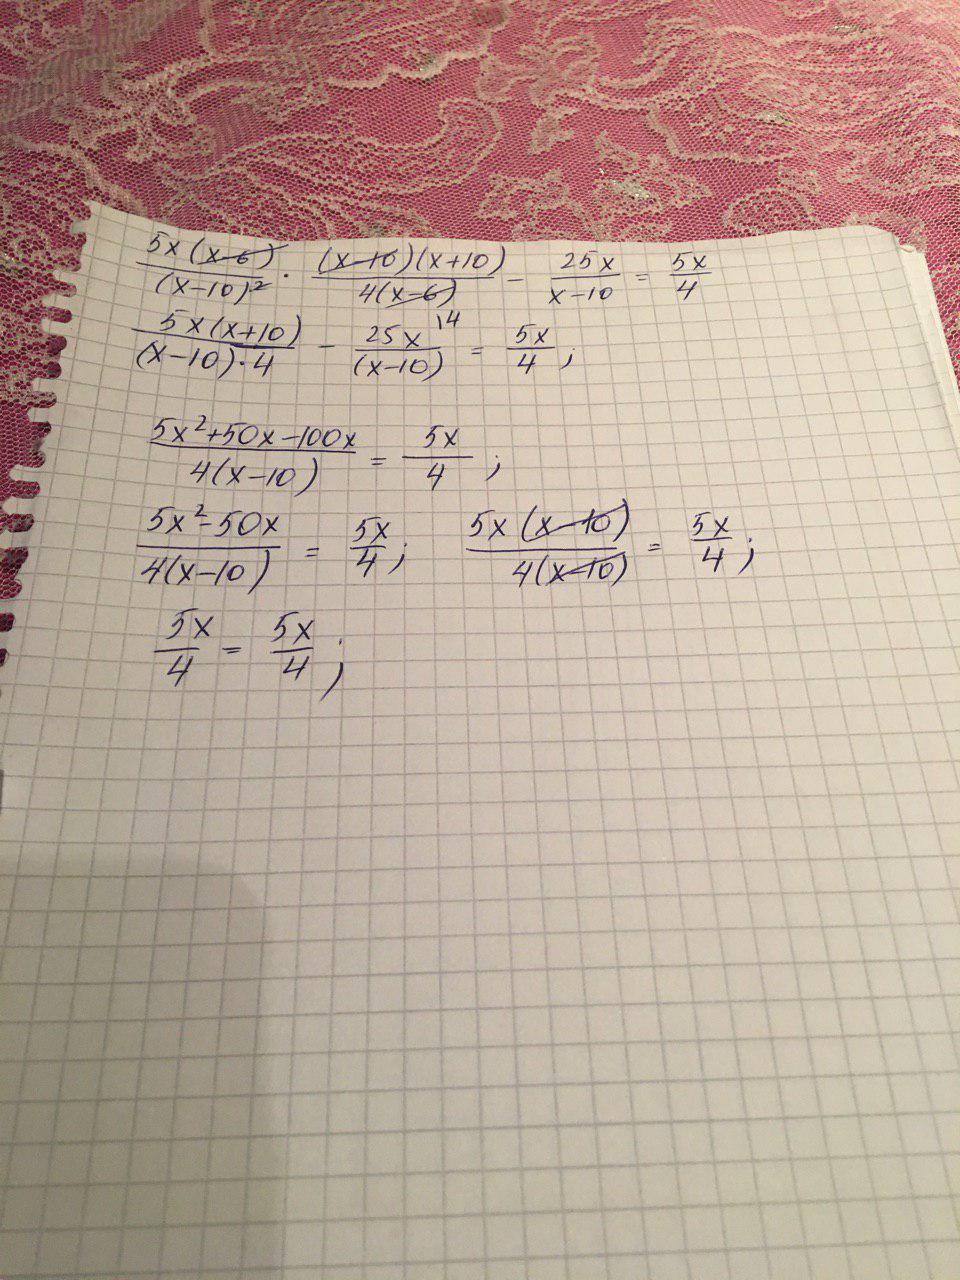 5x(x-6)/(x-10)² · (x-10)(x+10)/4(x-6) - 25x/x-10 = 5x/4
5x(x+10)/(x-10)·4 - 25x\4/(x-10) = 5x/4;
5x²+50x-100x/4(x-10) = 5x/4;
5x²-50x/4(x-10) = 5x/4; 5x(x-10)/4(x-10) = 5x/4;
5x/4 = 5x/4;